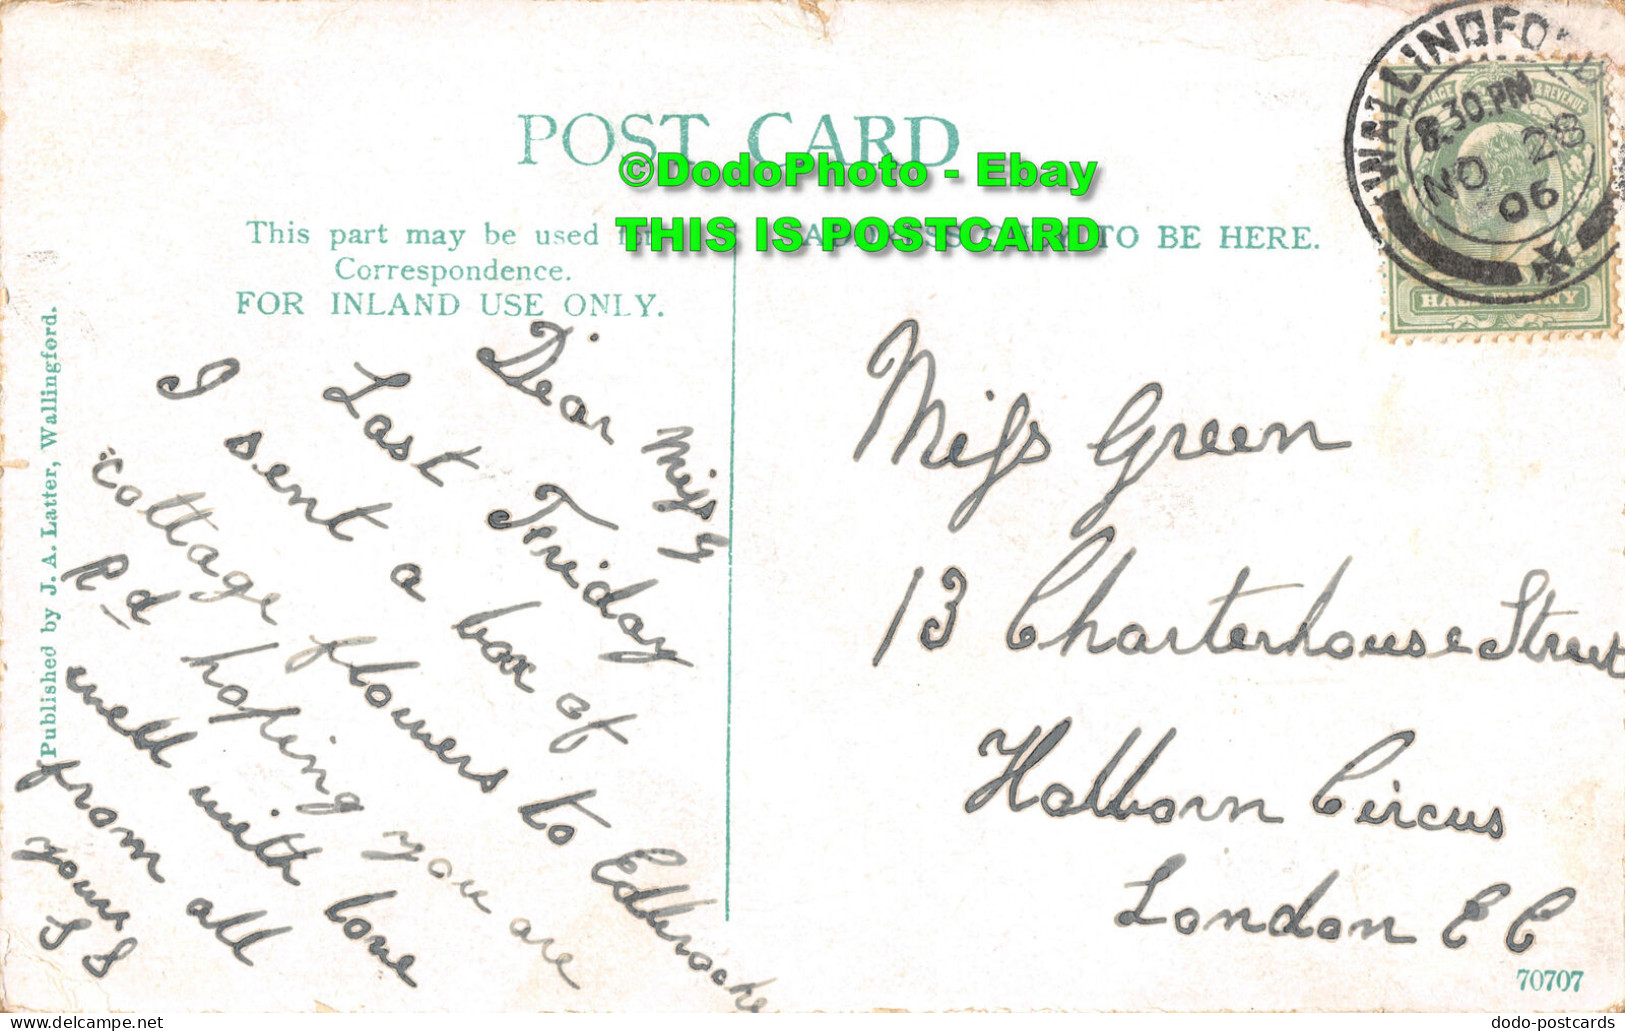 POST CARD
©DodoPhoto - Ebay
THIS IS POSTCARD
This part may be used
Correspondence.
FOR INLAND USE ONLY.
TO BE HERE.
WALLINGFORD
8.30 PM
NO 28
06
POSTAGE & REVENUE
HALFPENNY
Published by J. A. Latter, Wallingford.
Dear Miss G
Last Friday
I sent a box of
cottage flowers to Edbrooke
Rd hoping you are
well with love
from all
yours
S S
Miss Green
13 Charterhouse Street
Holborn Circus
London E C
70707
dodo-postcards